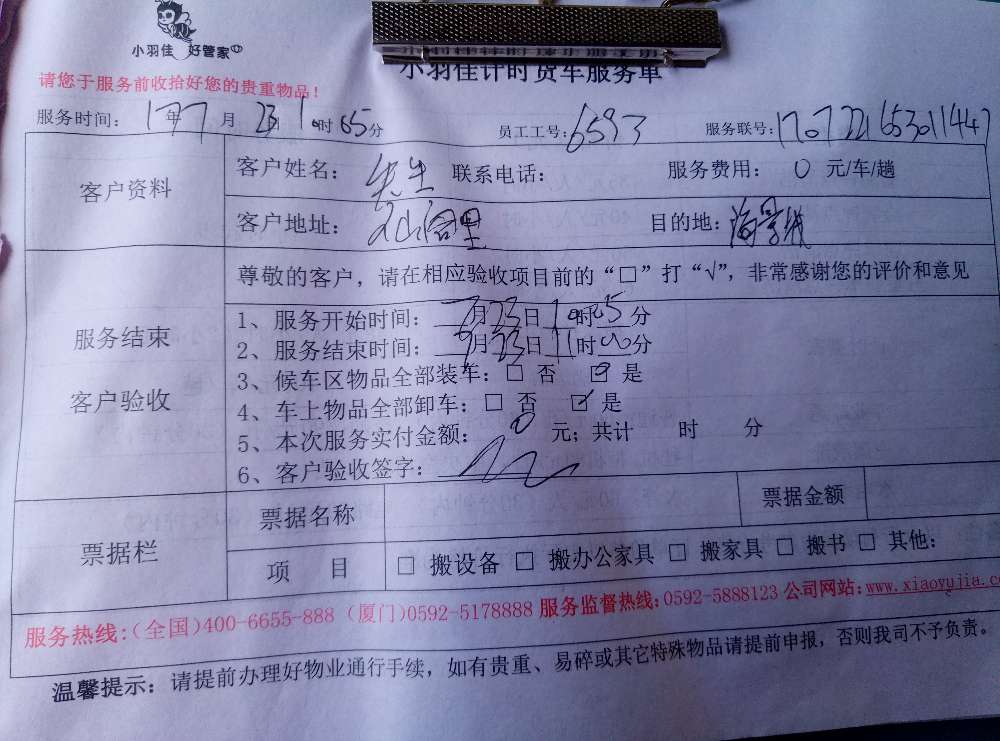 小羽佳 好管家
小羽佳计时货车服务单
请您于服务前收拾好您的贵重物品！
服务时间： 17年7月23日 时05分 员工工号：6593 服务联号：
客户资料
客户姓名： 先生 联系电话： 服务费用： 0 元/车/趟
客户地址： 目的地：
服务结束
客户验收
尊敬的客户，请在相应验收项目前的“□”打“√”，非常感谢您的评价和意见
1、服务开始时间： 7月23日10时05分
2、服务结束时间： 7月23日11时00分
3、候车区物品全部装车：□ 否 ☑ 是
4、车上物品全部卸车：□ 否 ☑ 是
5、本次服务实付金额： 0 元；共计 时 分
6、客户验收签字：
票据栏
票据名称 票据金额
项 目 □ 搬设备 □ 搬办公家具 □ 搬家具 □ 搬书 □ 其他：
服务热线：（全国）400-6655-888（厦门）0592-5178888 服务监督热线：0592-5888123 公司网站：www.xiaoyujia.c
温馨提示：请提前办理好物业通行手续，如有贵重、易碎或其它特殊物品请提前申报，否则我司不予负责。